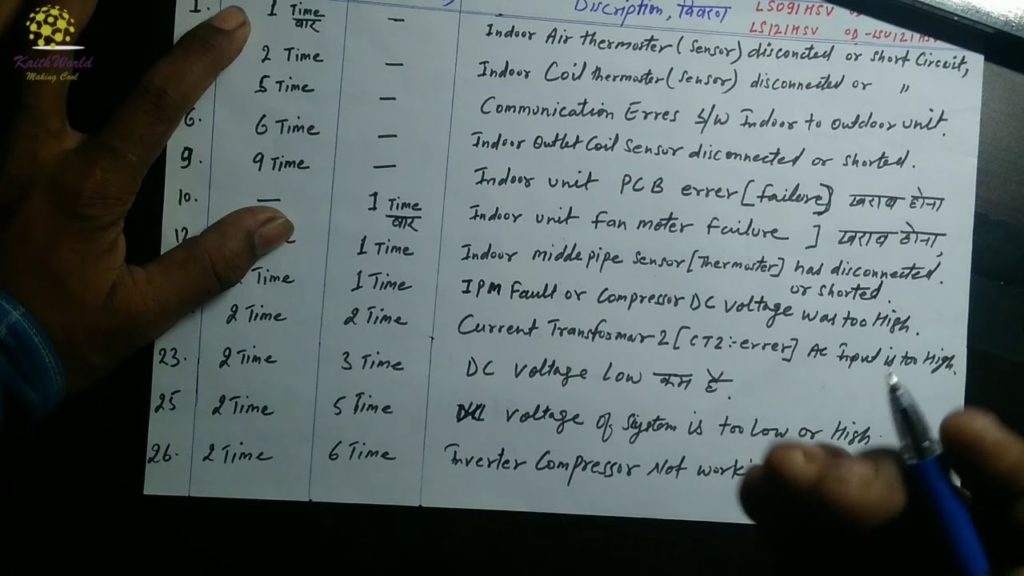 KaithWorld
Making Cool
Discription, विवरण LS091HSV
LS121HSV OD-LSU121HSV
1. 1 Time वार — Indoor Air thermaster (Sensor) disconcted or short Circuit,
2 Time — Indoor Coil thermaster (Sensor) disconnected or "
5 Time — Communication Erres b/w Indoor to outdoor unit.
6. 6 Time — Indoor Outlet Coil Sensor disconnected or shorted.
9. 9 Time — Indoor unit PCB errer [failure] खराब होना
10. — 1 Time वार Indoor unit fan moter failure ] खराब होना,
12 1 Time Indoor middepipe Sensor [Thermaster] has disconnected.
or shorted.
Time 1 Time IPM Fault or Compressor DC Voltage was too High.
2 Time 2 Time Current Transformar 2 [CT2:-errer] Ac Input is too High.
23. 2 Time 3 Time DC Voltage Low कम है.
25 2 Time 5 Time Voltage of System is too Low or High.
26. 2 Time 6 Time Inverter Compressor Not